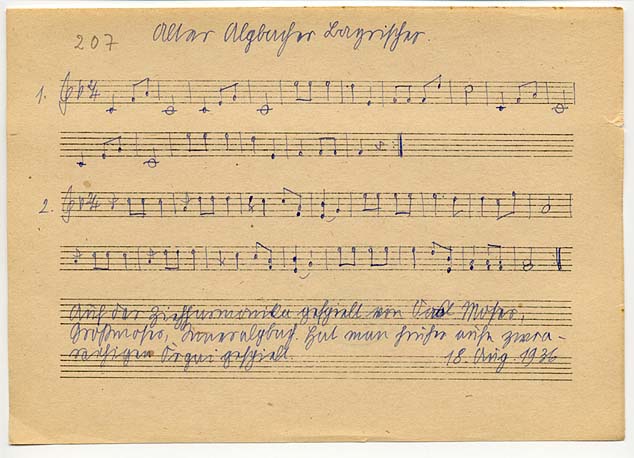 207 Alter Algbacher Bayrischer.
1.
2.
Auf der Ziehharmonika gespielt von Karl Moser,
Großmoser, Inneralgbach. Hat man früher auf
gespielt. 18. Aug. 1936